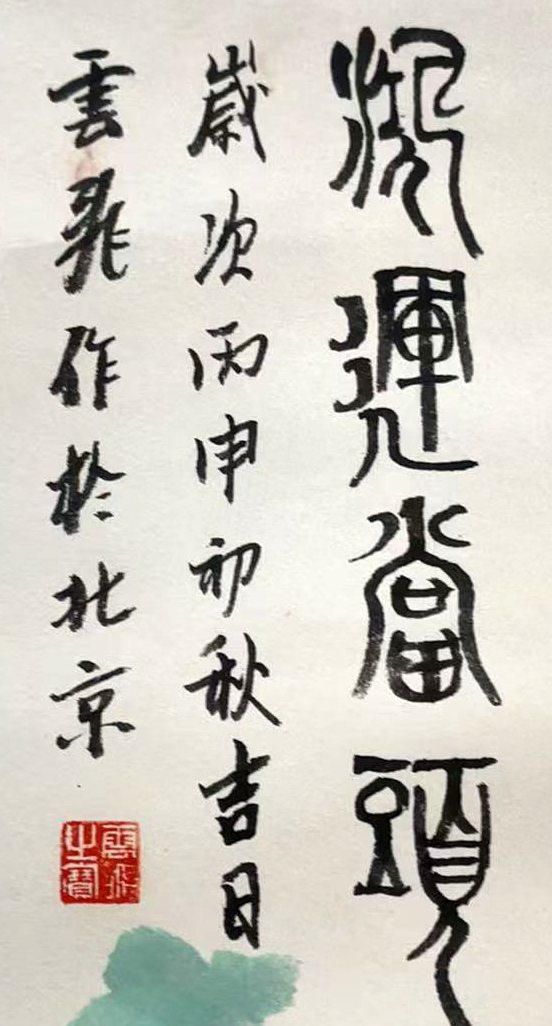 鴻運當頭
歲次丙申初秋吉日
雲飛作於北京
雲飛之寶